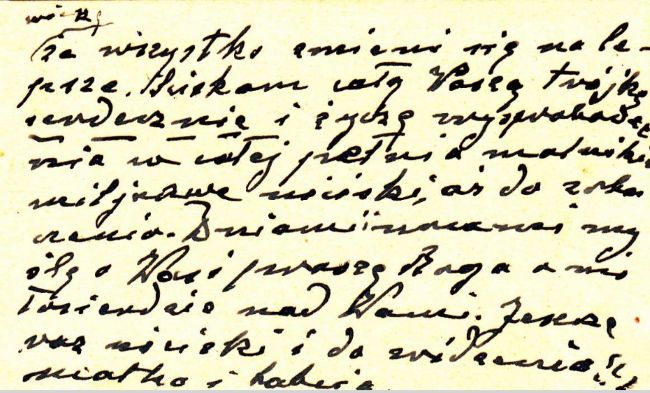 wierzę
że wszystko zmieni się na le-
psze. Ściskam całą Waszą trójkę
serdecznie i życzę wyprowadze
nia w całej pełni a maluśkie
miljonowe uściski, aż do zoba
czenia. Dniami i nocami my
ślę o Was i proszę Boga o mi
łosierdzie nad Wami. Jeszcze
raz uściski i do widzenia!!
matka i babcia